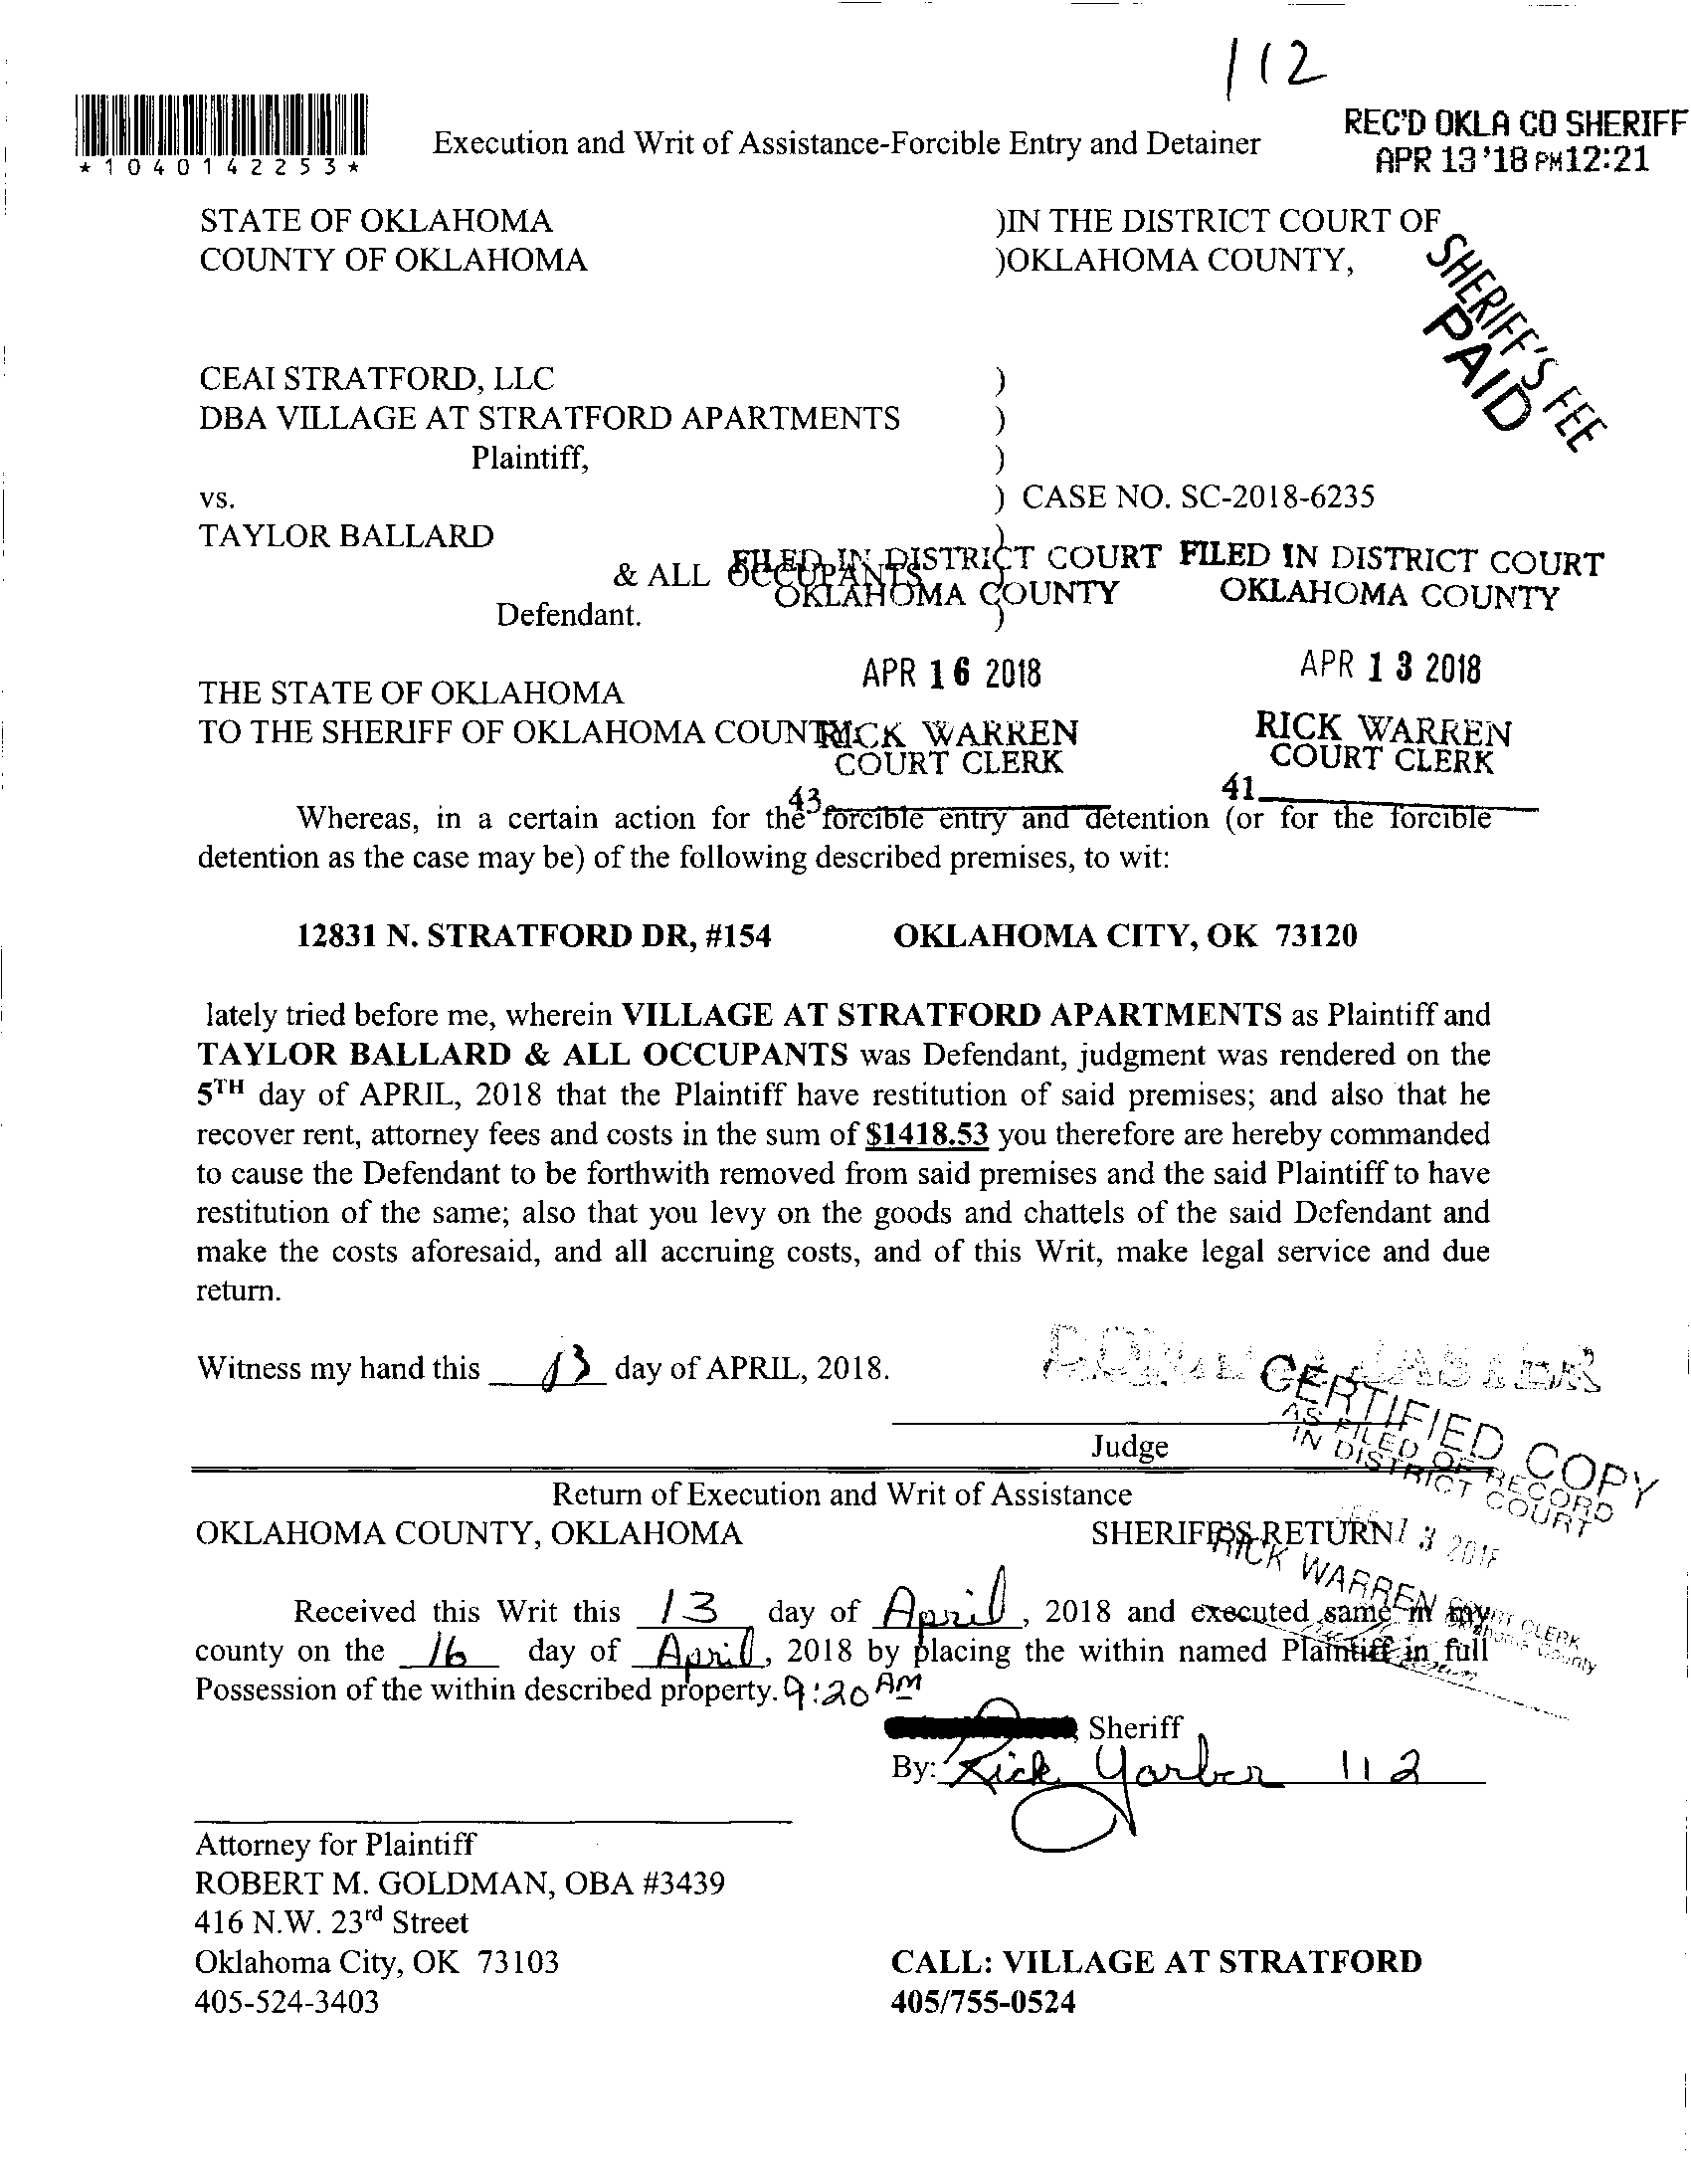 112
*1040142253*
Execution and Writ of Assistance-Forcible Entry and Detainer
REC'D OKLA CO SHERIFF
APR 13 '18 PM12:21
STATE OF OKLAHOMA )IN THE DISTRICT COURT OF
COUNTY OF OKLAHOMA )OKLAHOMA COUNTY,
SHERIFF'S FEE
PAID
CEAI STRATFORD, LLC )
DBA VILLAGE AT STRATFORD APARTMENTS )
Plaintiff, )
vs. ) CASE NO. SC-2018-6235
TAYLOR BALLARD )
& ALL OCCUPANTS )
Defendant. )
FILED IN DISTRICT COURT
OKLAHOMA COUNTY
APR 16 2018
RICK WARREN
COURT CLERK
43
FILED IN DISTRICT COURT
OKLAHOMA COUNTY
APR 13 2018
RICK WARREN
COURT CLERK
41
THE STATE OF OKLAHOMA
TO THE SHERIFF OF OKLAHOMA COUNTY:
Whereas, in a certain action for the forcible entry and detention (or for the forcible
detention as the case may be) of the following described premises, to wit:
12831 N. STRATFORD DR, #154 OKLAHOMA CITY, OK 73120
lately tried before me, wherein VILLAGE AT STRATFORD APARTMENTS as Plaintiff and
TAYLOR BALLARD & ALL OCCUPANTS was Defendant, judgment was rendered on the
5TH day of APRIL, 2018 that the Plaintiff have restitution of said premises; and also that he
recover rent, attorney fees and costs in the sum of $1418.53 you therefore are hereby commanded
to cause the Defendant to be forthwith removed from said premises and the said Plaintiff to have
restitution of the same; also that you levy on the goods and chattels of the said Defendant and
make the costs aforesaid, and all accruing costs, and of this Writ, make legal service and due
return.
Witness my hand this 13 day of APRIL, 2018.
Judge
CERTIFIED COPY
AS FILED OF RECORD
IN DISTRICT COURT
13 2018
RICK WARREN COURT CLERK
Oklahoma County
Return of Execution and Writ of Assistance
OKLAHOMA COUNTY, OKLAHOMA SHERIFF'S RETURN
Received this Writ this 13 day of April, 2018 and executed same in my
county on the 16 day of April, 2018 by placing the within named Plaintiff in full
Possession of the within described property. 9:20 AM
, Sheriff
By: Rick Yarber 112
Attorney for Plaintiff
ROBERT M. GOLDMAN, OBA #3439
416 N.W. 23rd Street
Oklahoma City, OK 73103 CALL: VILLAGE AT STRATFORD
405-524-3403 405/755-0524